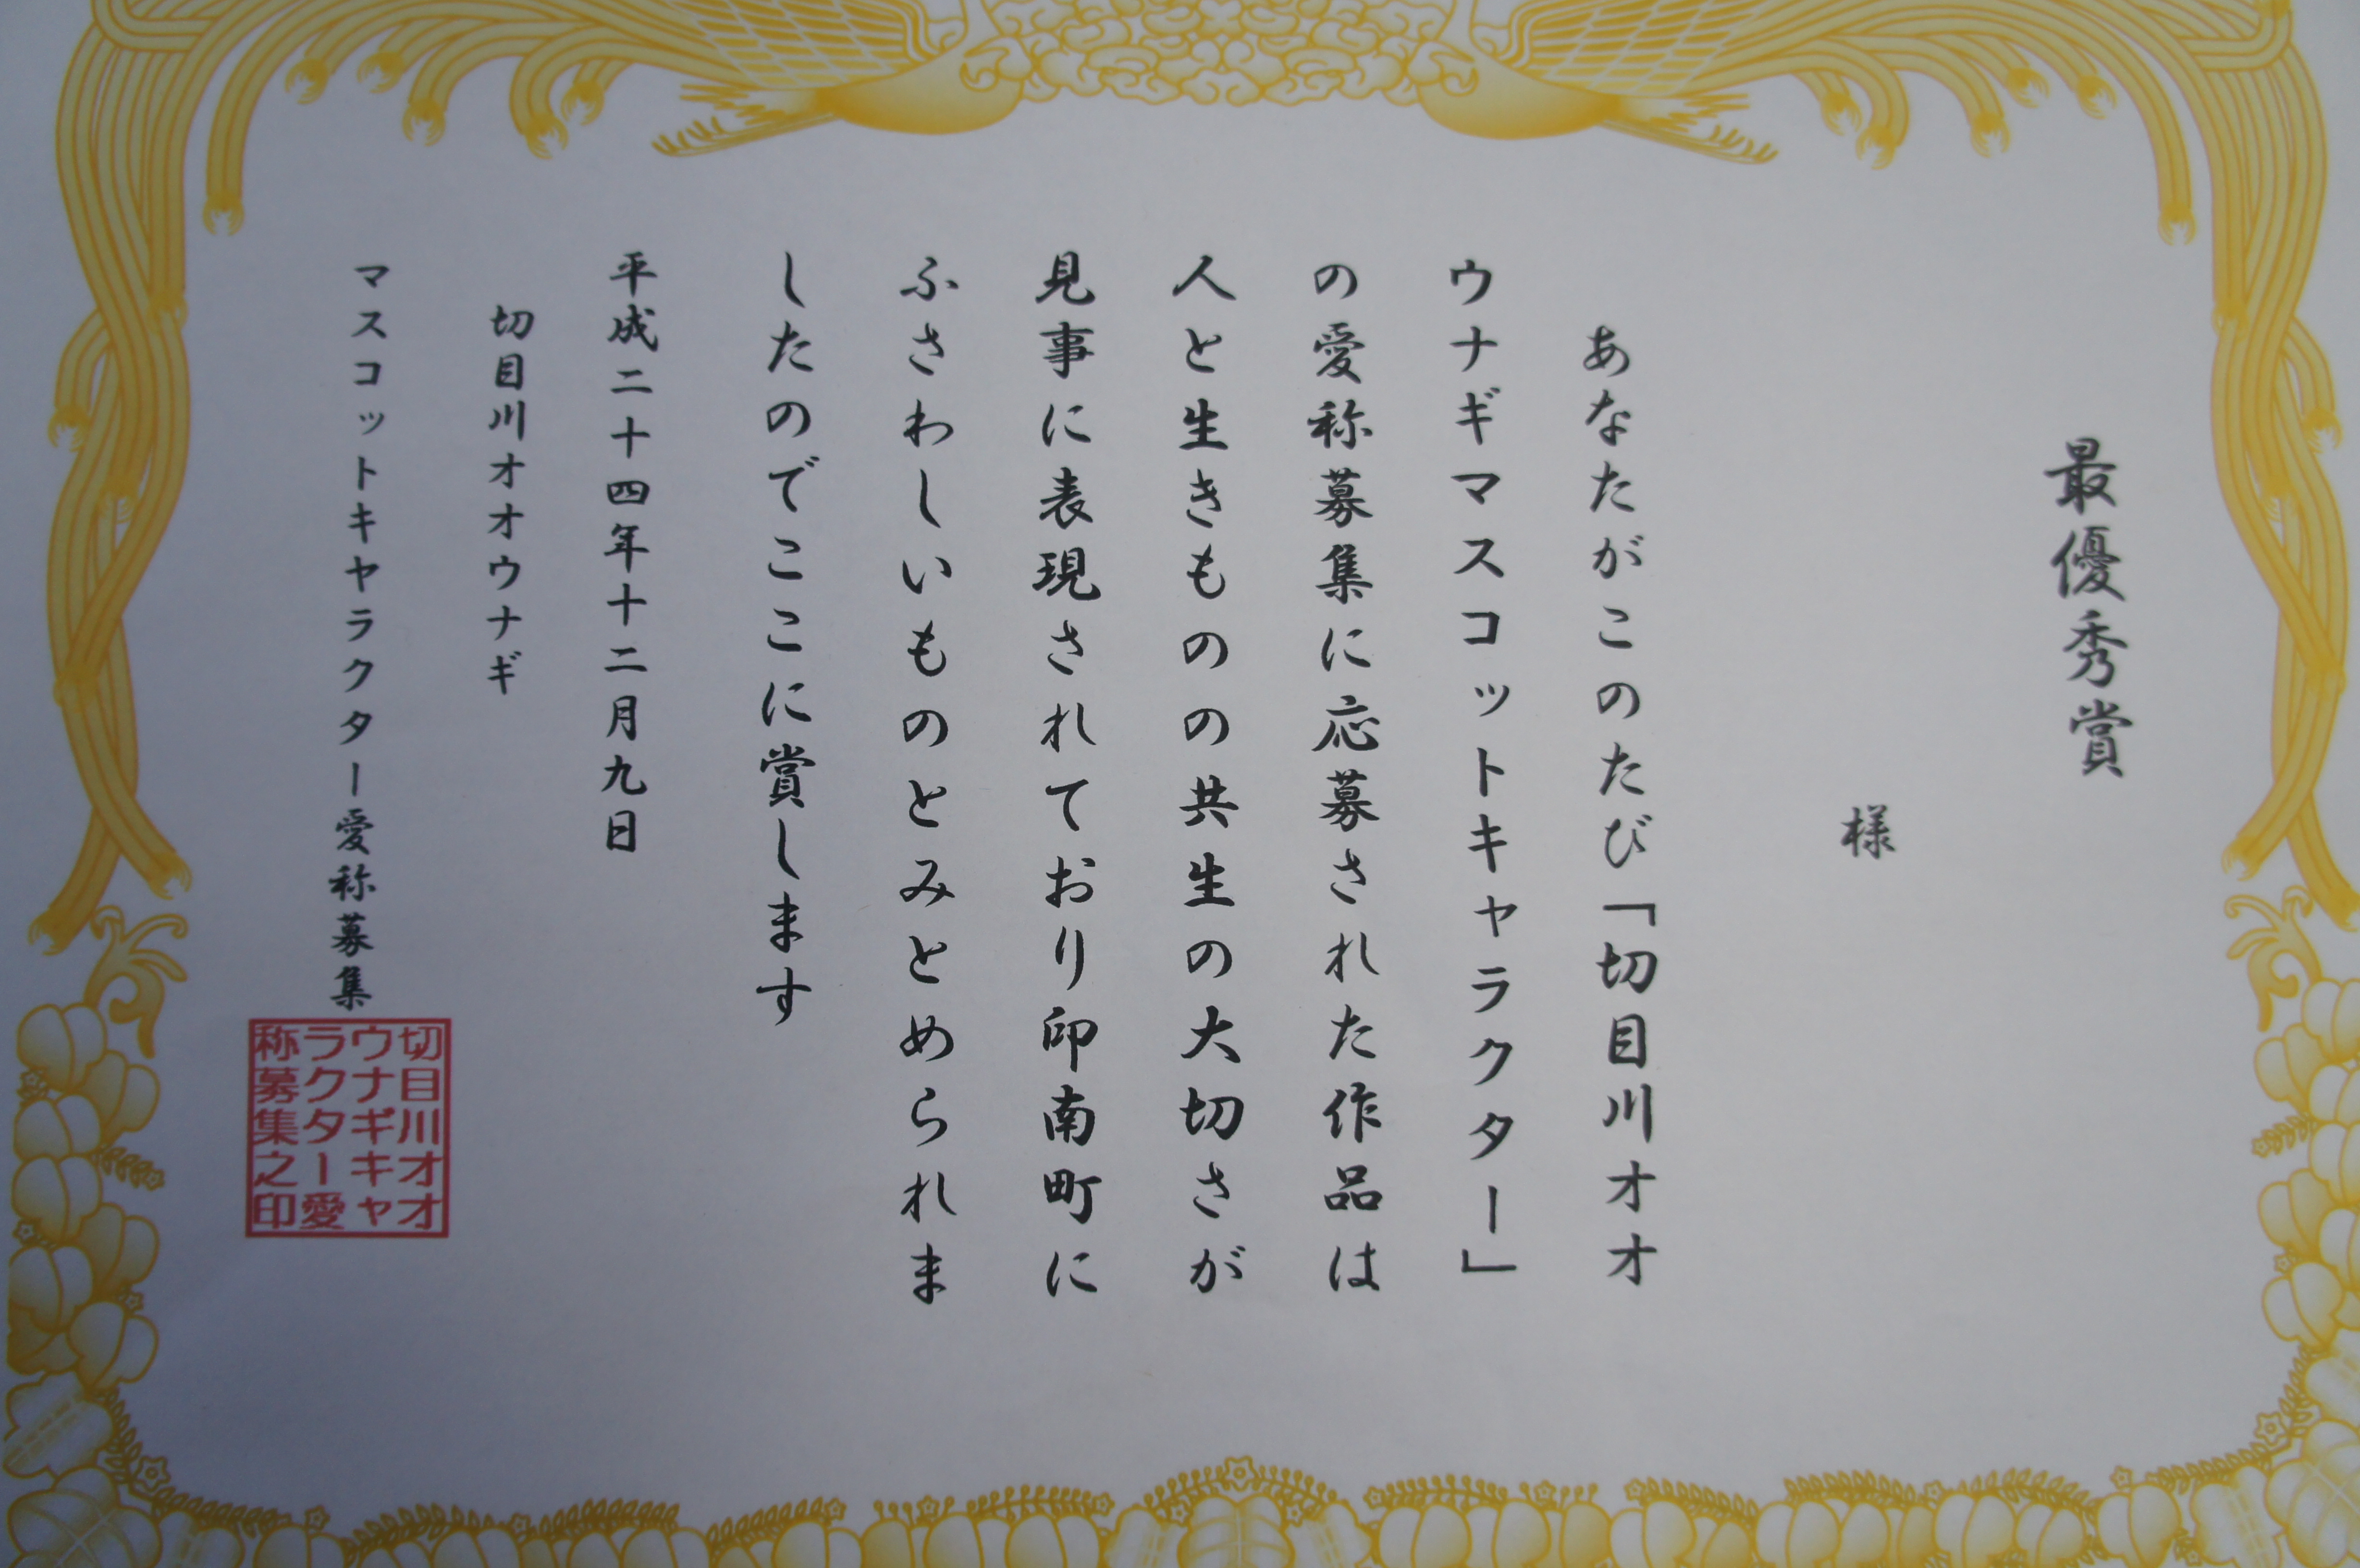 最優秀賞
様
あなたがこのたび「切目川オオ
ウナギマスコットキャラクター」
の愛称募集に応募された作品は
人と生きものの共生の大切さが
見事に表現されており印南町に
ふさわしいものとみとめられま
したのでここに賞します
平成二十四年十二月九日
切目川オオウナギ
マスコットキヤラクター愛称募集
切目川オオ
ウナギキャ
ラクター愛
称募集之印